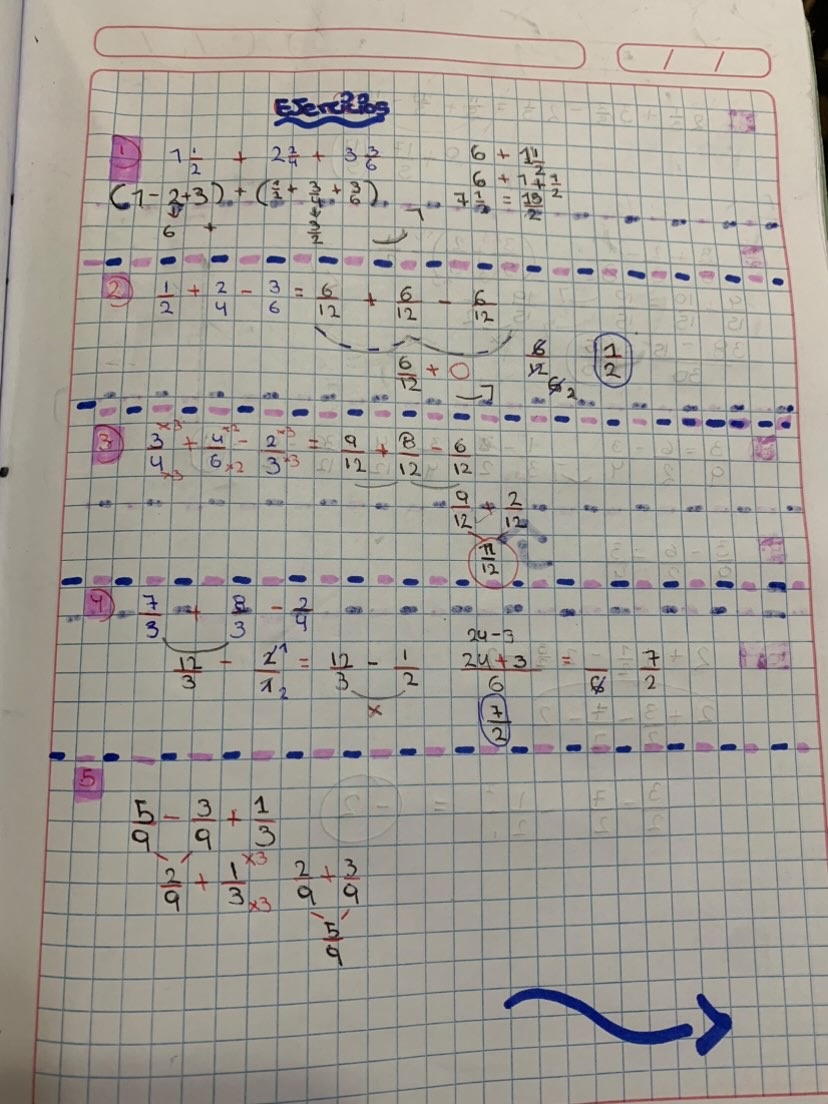 Ejercicios
1 1 1/2 + 2 2/4 + 3 3/6 6 + 1 1/2
(1 - 2 + 3) + (1/2 + 3/4 + 3/6) 6 + 1 + 1/2
6 + 3/2 7 1/2 = 15/2
2 1/2 + 2/4 - 3/6 = 6/12 + 6/12 - 6/12
6/12 + 0 6/12 1/2
3 3/4 + 4/6 - 2/3 = 9/12 + 8/12 - 6/12
x3 x3 x2 x2 x3 x3
9/12 + 2/12
11/12
4 7/3 + 8/3 - 2/4
24-3
12/3 - 2/4 = 12/3 - 1/2 24+3/6 = 7/2
x
7/2
5
5/9 - 3/9 + 1/3
2/9 + 1/3 x3 x3 2/9 + 3/9
5/9